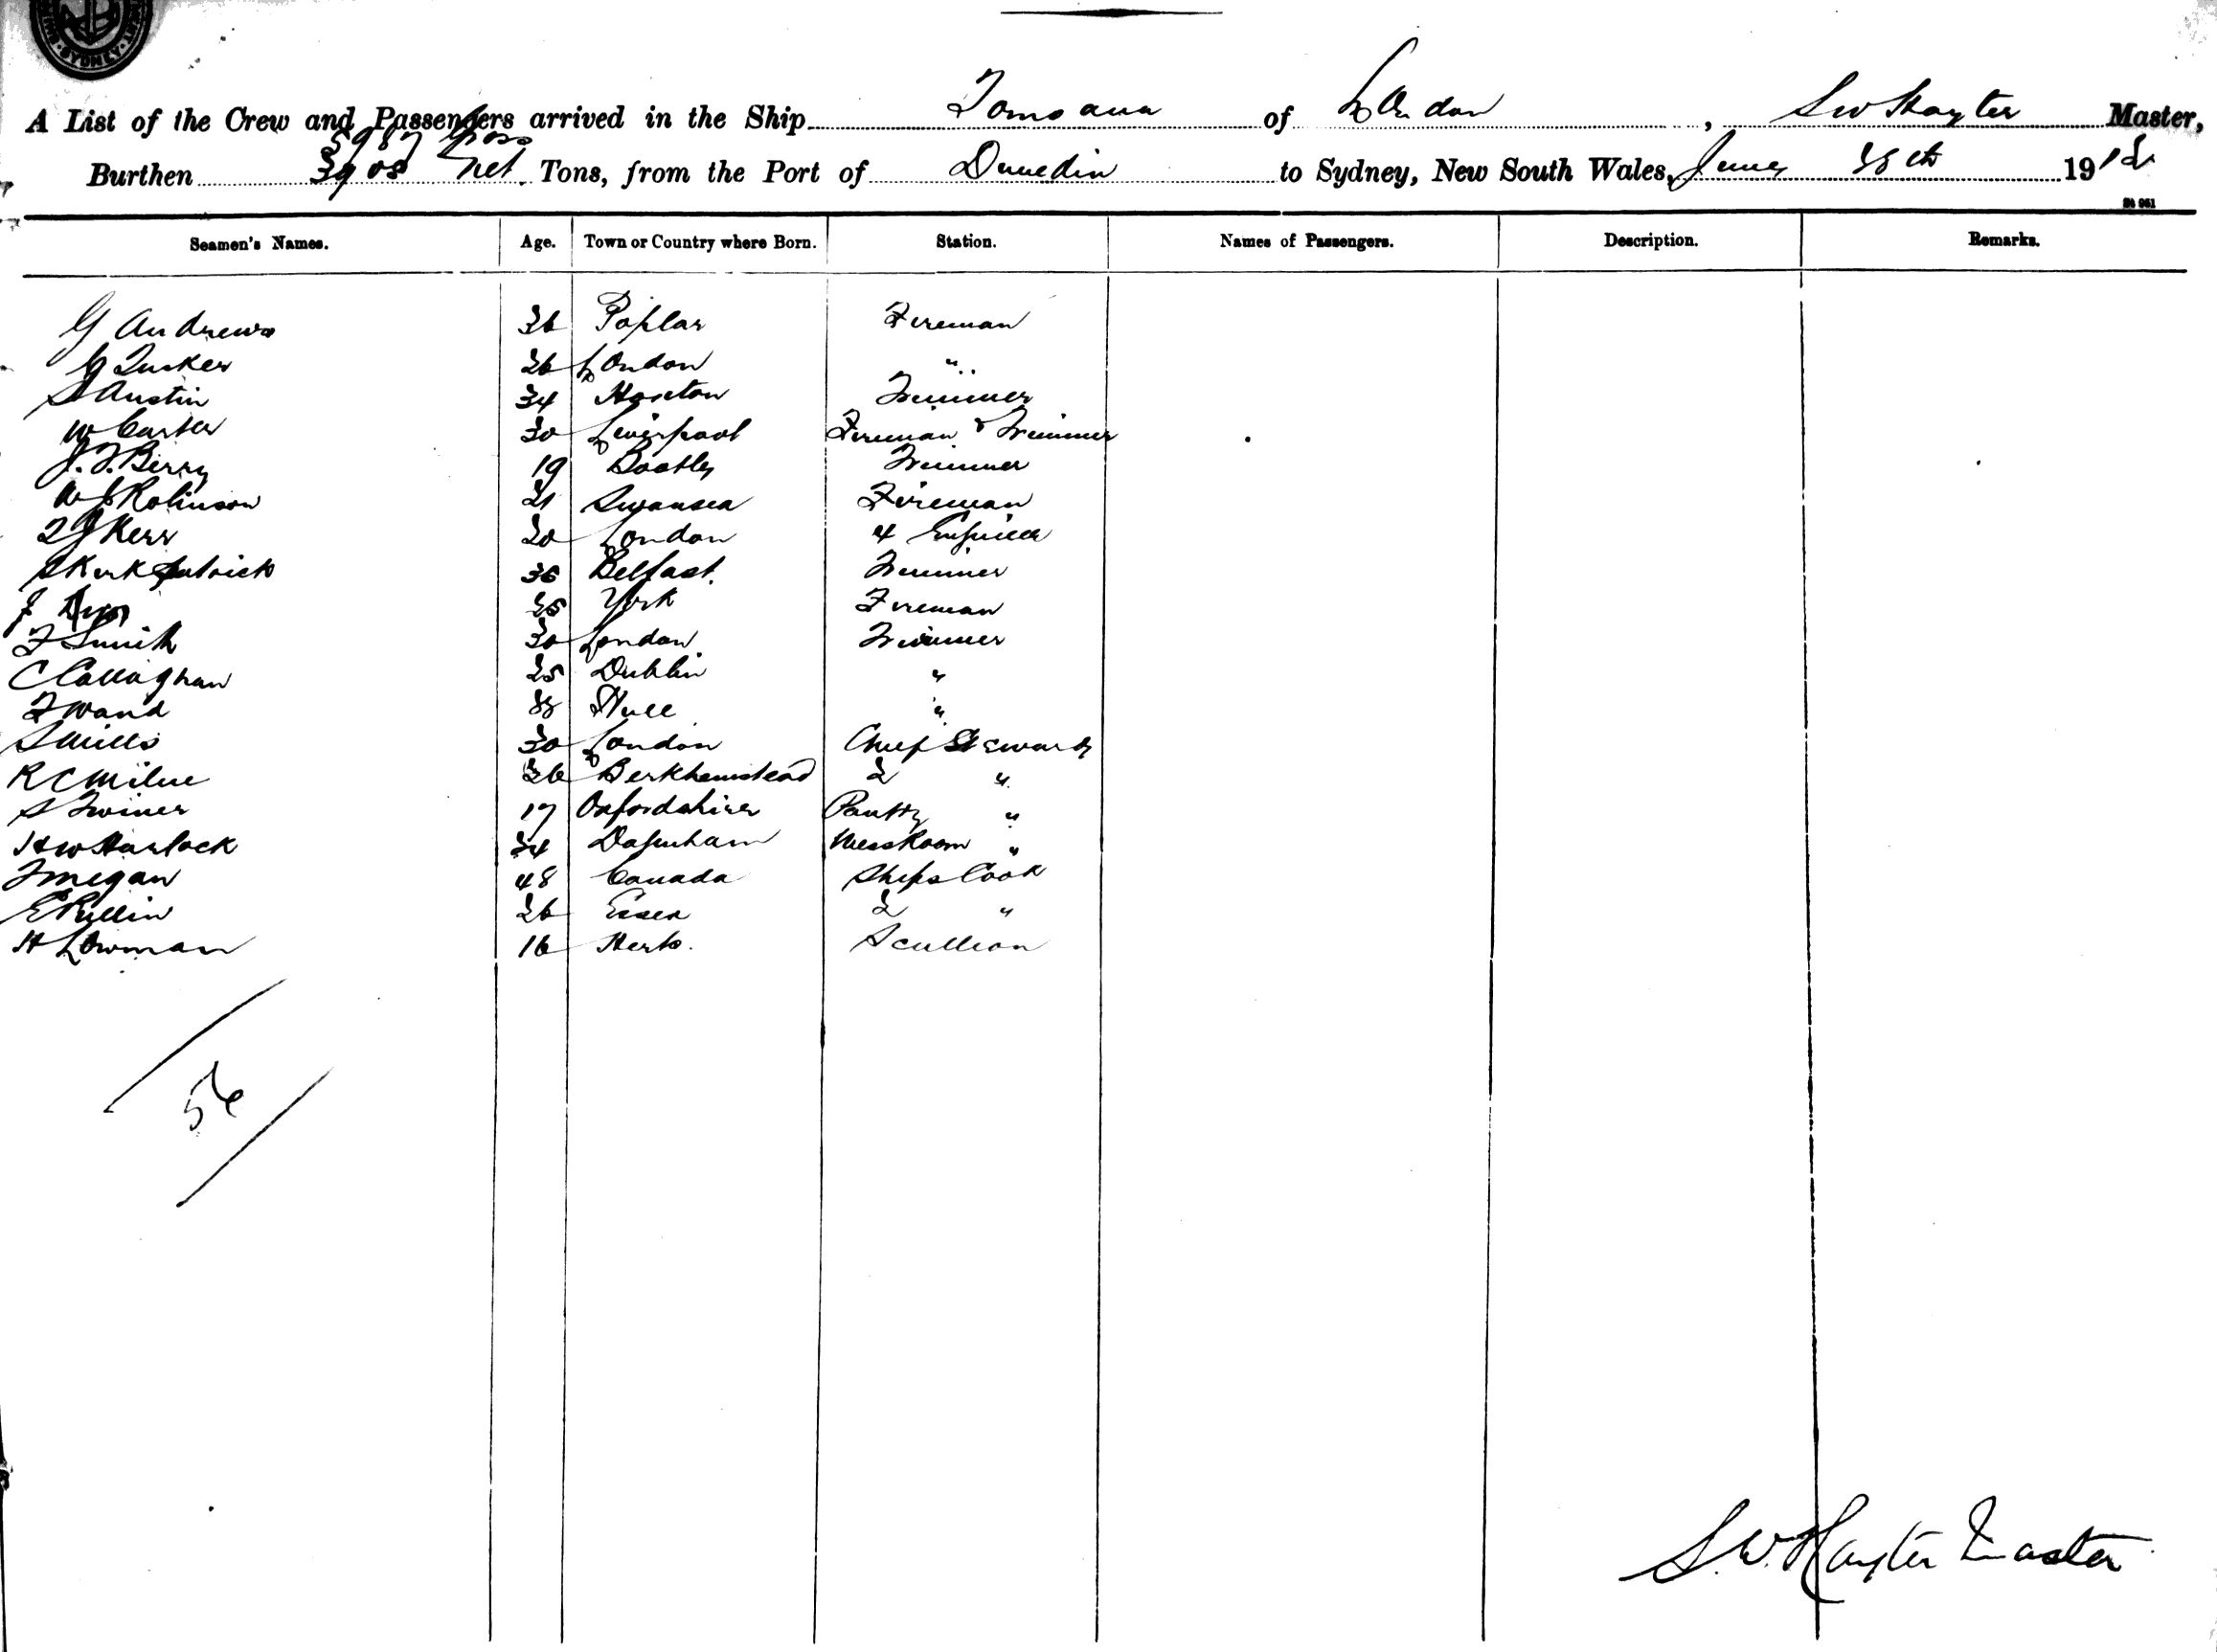 SYDNEY
A List of the Crew and Passengers arrived in the Ship Tomoana of London, S W Hayter Master,
5987 Gross
Burthen 3908 Net Tons, from the Port of Dunedin to Sydney, New South Wales, June 1912
Seamen's Names. Age. Town or Country where Born. Station. Names of Passengers. Description. Remarks.
G Andrews 36 Poplar Fireman
G Tucker 26 London "
S Austin 34 Hoxton Trimmer
W Carter 30 Liverpool Fireman & Trimmer
J. F. Berry 19 Bootle Trimmer
W J Robinson 21 Swansea Fireman
Kerr 20 London 4 Engineer
Kirkpatrick 36 Belfast. Trimmer
J York Fireman
F Smith 30 London Trimmer
C Callaghan 25 Dublin "
F Wand 38 Hull "
S Mills 30 London Chief Steward
R C Milne 26 Berkhamstead 2 "
S Twiner 17 Oxfordshire Pantry "
H W Harlock 34 Dagenham MessRoom "
T Megan 48 Canada Ships Cook
E Pullin 26 Essex 2 "
H Lowman 16 Herts. Scullion
56
S. W. Hayter Master